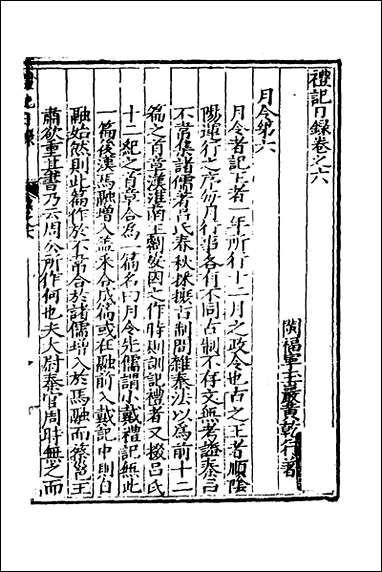 禮記日錄卷之六
閩福寧玉巖黃乾行著
月令第六
月令者記王者一年所行十二月之政令也古之王者順陰
陽運行之序每月行事各有不同古制不存文無考證秦呂
不韋集諸儒著呂氏春秋採摭古制間雜秦法以為前十二
篇之首章漢淮南王劉安因之作時則訓記禮者又掇呂氏
十二紀之首章合為一篇名曰月令先儒謂小戴禮記無此
一篇後漢馬融增入蓋未合成篇或在融前入戴記中則自
融始然則此篇作於不韋合於諸儒增入於馬融而蔡邕王
肅欲重其書乃云周公所作何也夫大尉秦官周時無之而